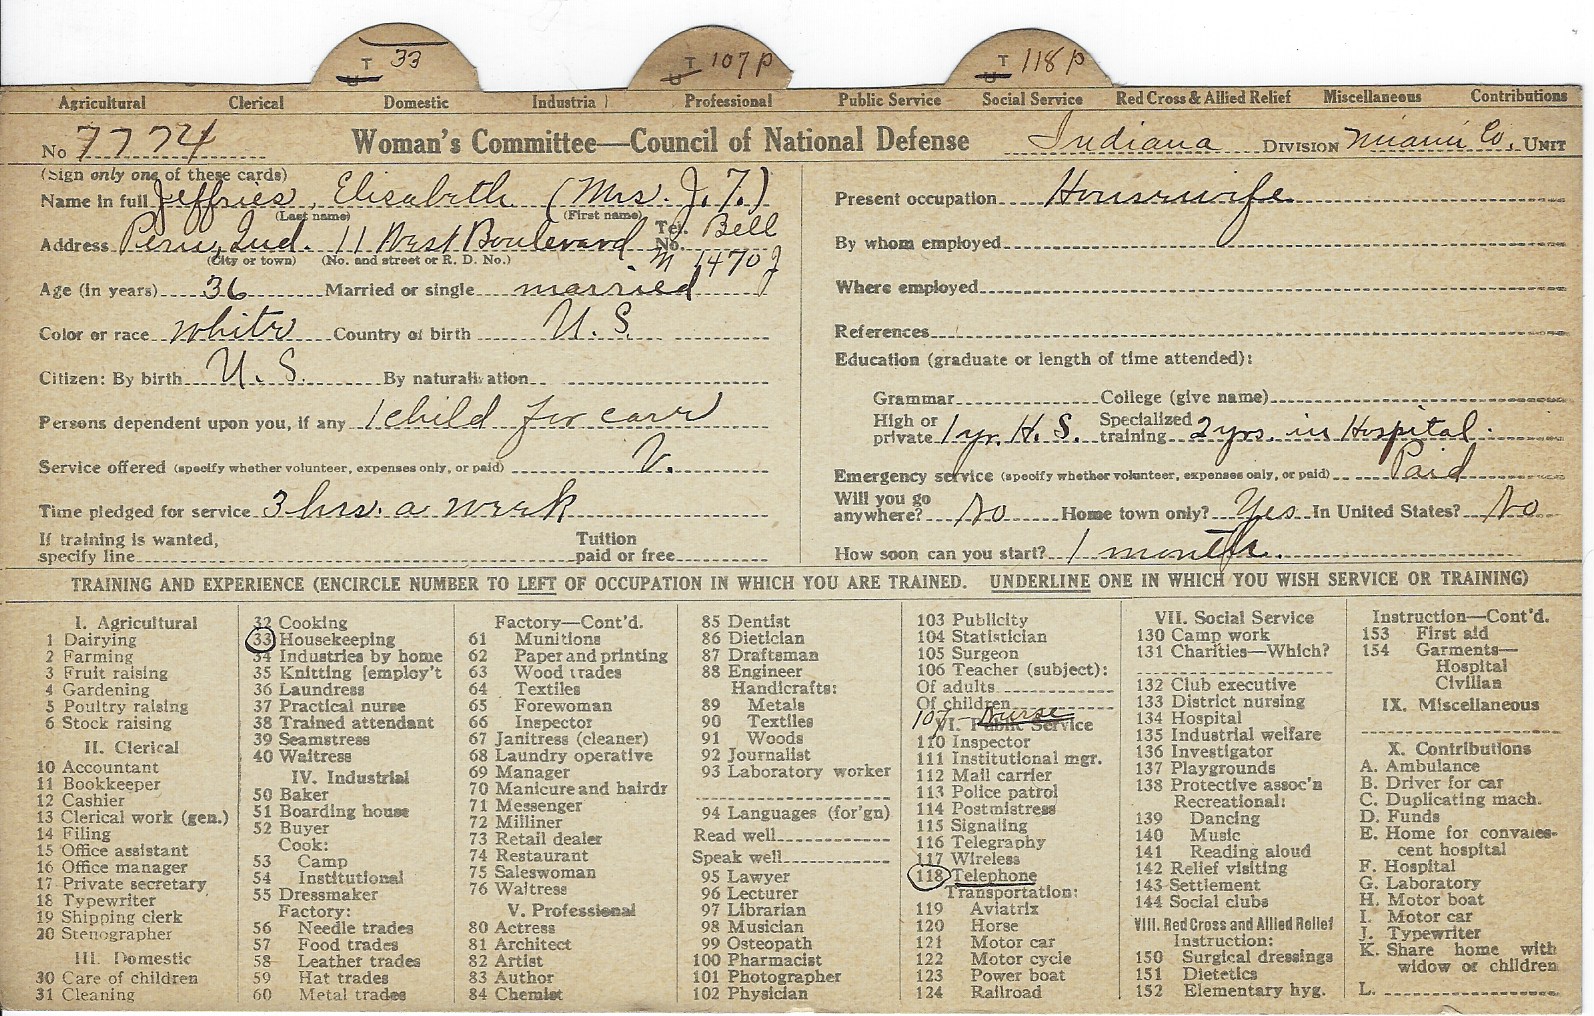 T U 33
T U 107 P
T U 118 P
Agricultural Clerical Domestic Industrial Professional Public Service Social Service Red Cross & Allied Relief Miscellaneous Contributions
No 7774 Woman's Committee—Council of National Defense Indiana DIVISION Miami Co. UNIT
(Sign only one of these cards)
Name in full Jeffries, Elisabeth (Mrs. J. F.)
(Last name) (First name)
Address Peru, Ind. 11 West Boulevard Tel. No. Bell
(City or town) (No. and street or R. D. No.) M 1470 J
Age (in years) 36 Married or single married
Color or race white Country of birth U. S.
Citizen: By birth U. S. By naturalization
Persons dependent upon you, if any 1 child for care
Service offered (specify whether volunteer, expenses only, or paid) V.
Time pledged for service 3 hrs. a week
If training is wanted, Tuition
specify line paid or free
Present occupation Housewife
By whom employed
Where employed
References
Education (graduate or length of time attended):
Grammar College (give name)
High or private 1 yr. H. S. Specialized training 2 yrs. in Hospital.
Emergency service (specify whether volunteer, expenses only, or paid) Paid
Will you go anywhere? No Home town only? Yes In United States? No
How soon can you start? 1 month.
TRAINING AND EXPERIENCE (ENCIRCLE NUMBER TO LEFT OF OCCUPATION IN WHICH YOU ARE TRAINED. UNDERLINE ONE IN WHICH YOU WISH SERVICE OR TRAINING)
I. Agricultural
1 Dairying
2 Farming
3 Fruit raising
4 Gardening
5 Poultry raising
6 Stock raising
II. Clerical
10 Accountant
11 Bookkeeper
12 Cashier
13 Clerical work (gen.)
14 Filing
15 Office assistant
16 Office manager
17 Private secretary
18 Typewriter
19 Shipping clerk
20 Stenographer
III. Domestic
30 Care of children
31 Cleaning
32 Cooking
33 Housekeeping
34 Industries by home
35 Knitting [employ't
36 Laundress
37 Practical nurse
38 Trained attendant
39 Seamstress
40 Waitress
IV. Industrial
50 Baker
51 Boarding house
52 Buyer
Cook:
53 Camp
54 Institutional
55 Dressmaker
Factory:
56 Needle trades
57 Food trades
58 Leather trades
59 Hat trades
60 Metal trades
Factory—Cont'd.
61 Munitions
62 Paper and printing
63 Wood trades
64 Textiles
65 Forewoman
66 Inspector
67 Janitress (cleaner)
68 Laundry operative
69 Manager
70 Manicure and hairdr
71 Messenger
72 Milliner
73 Retail dealer
74 Restaurant
75 Saleswoman
76 Waitress
V. Professional
80 Actress
81 Architect
82 Artist
83 Author
84 Chemist
85 Dentist
86 Dietician
87 Draftsman
88 Engineer
Handicrafts:
89 Metals
90 Textiles
91 Woods
92 Journalist
93 Laboratory worker
94 Languages (for'gn)
Read well
Speak well
95 Lawyer
96 Lecturer
97 Librarian
98 Musician
99 Osteopath
100 Pharmacist
101 Photographer
102 Physician
103 Publicity
104 Statistician
105 Surgeon
106 Teacher (subject):
Of adults
Of children
107- Nurse
VI. Public Service
110 Inspector
111 Institutional mgr.
112 Mail carrier
113 Police patrol
114 Postmistress
115 Signaling
116 Telegraphy
117 Wireless
118 Telephone
Transportation:
119 Aviatrix
120 Horse
121 Motor car
122 Motor cycle
123 Power boat
124 Railroad
VII. Social Service
130 Camp work
131 Charities—Which?
132 Club executive
133 District nursing
134 Hospital
135 Industrial welfare
136 Investigator
137 Playgrounds
138 Protective assoc'n
Recreational:
139 Dancing
140 Music
141 Reading aloud
142 Relief visiting
143 Settlement
144 Social clubs
VIII. Red Cross and Allied Relief
Instruction:
150 Surgical dressings
151 Dietetics
152 Elementary hyg.
Instruction—Cont'd.
153 First aid
154 Garments—
Hospital
Civilian
IX. Miscellaneous
X. Contributions
A. Ambulance
B. Driver for car
C. Duplicating mach.
D. Funds
E. Home for convales-
cent hospital
F. Hospital
G. Laboratory
H. Motor boat
I. Motor car
J. Typewriter
K. Share home with
widow or children
L.